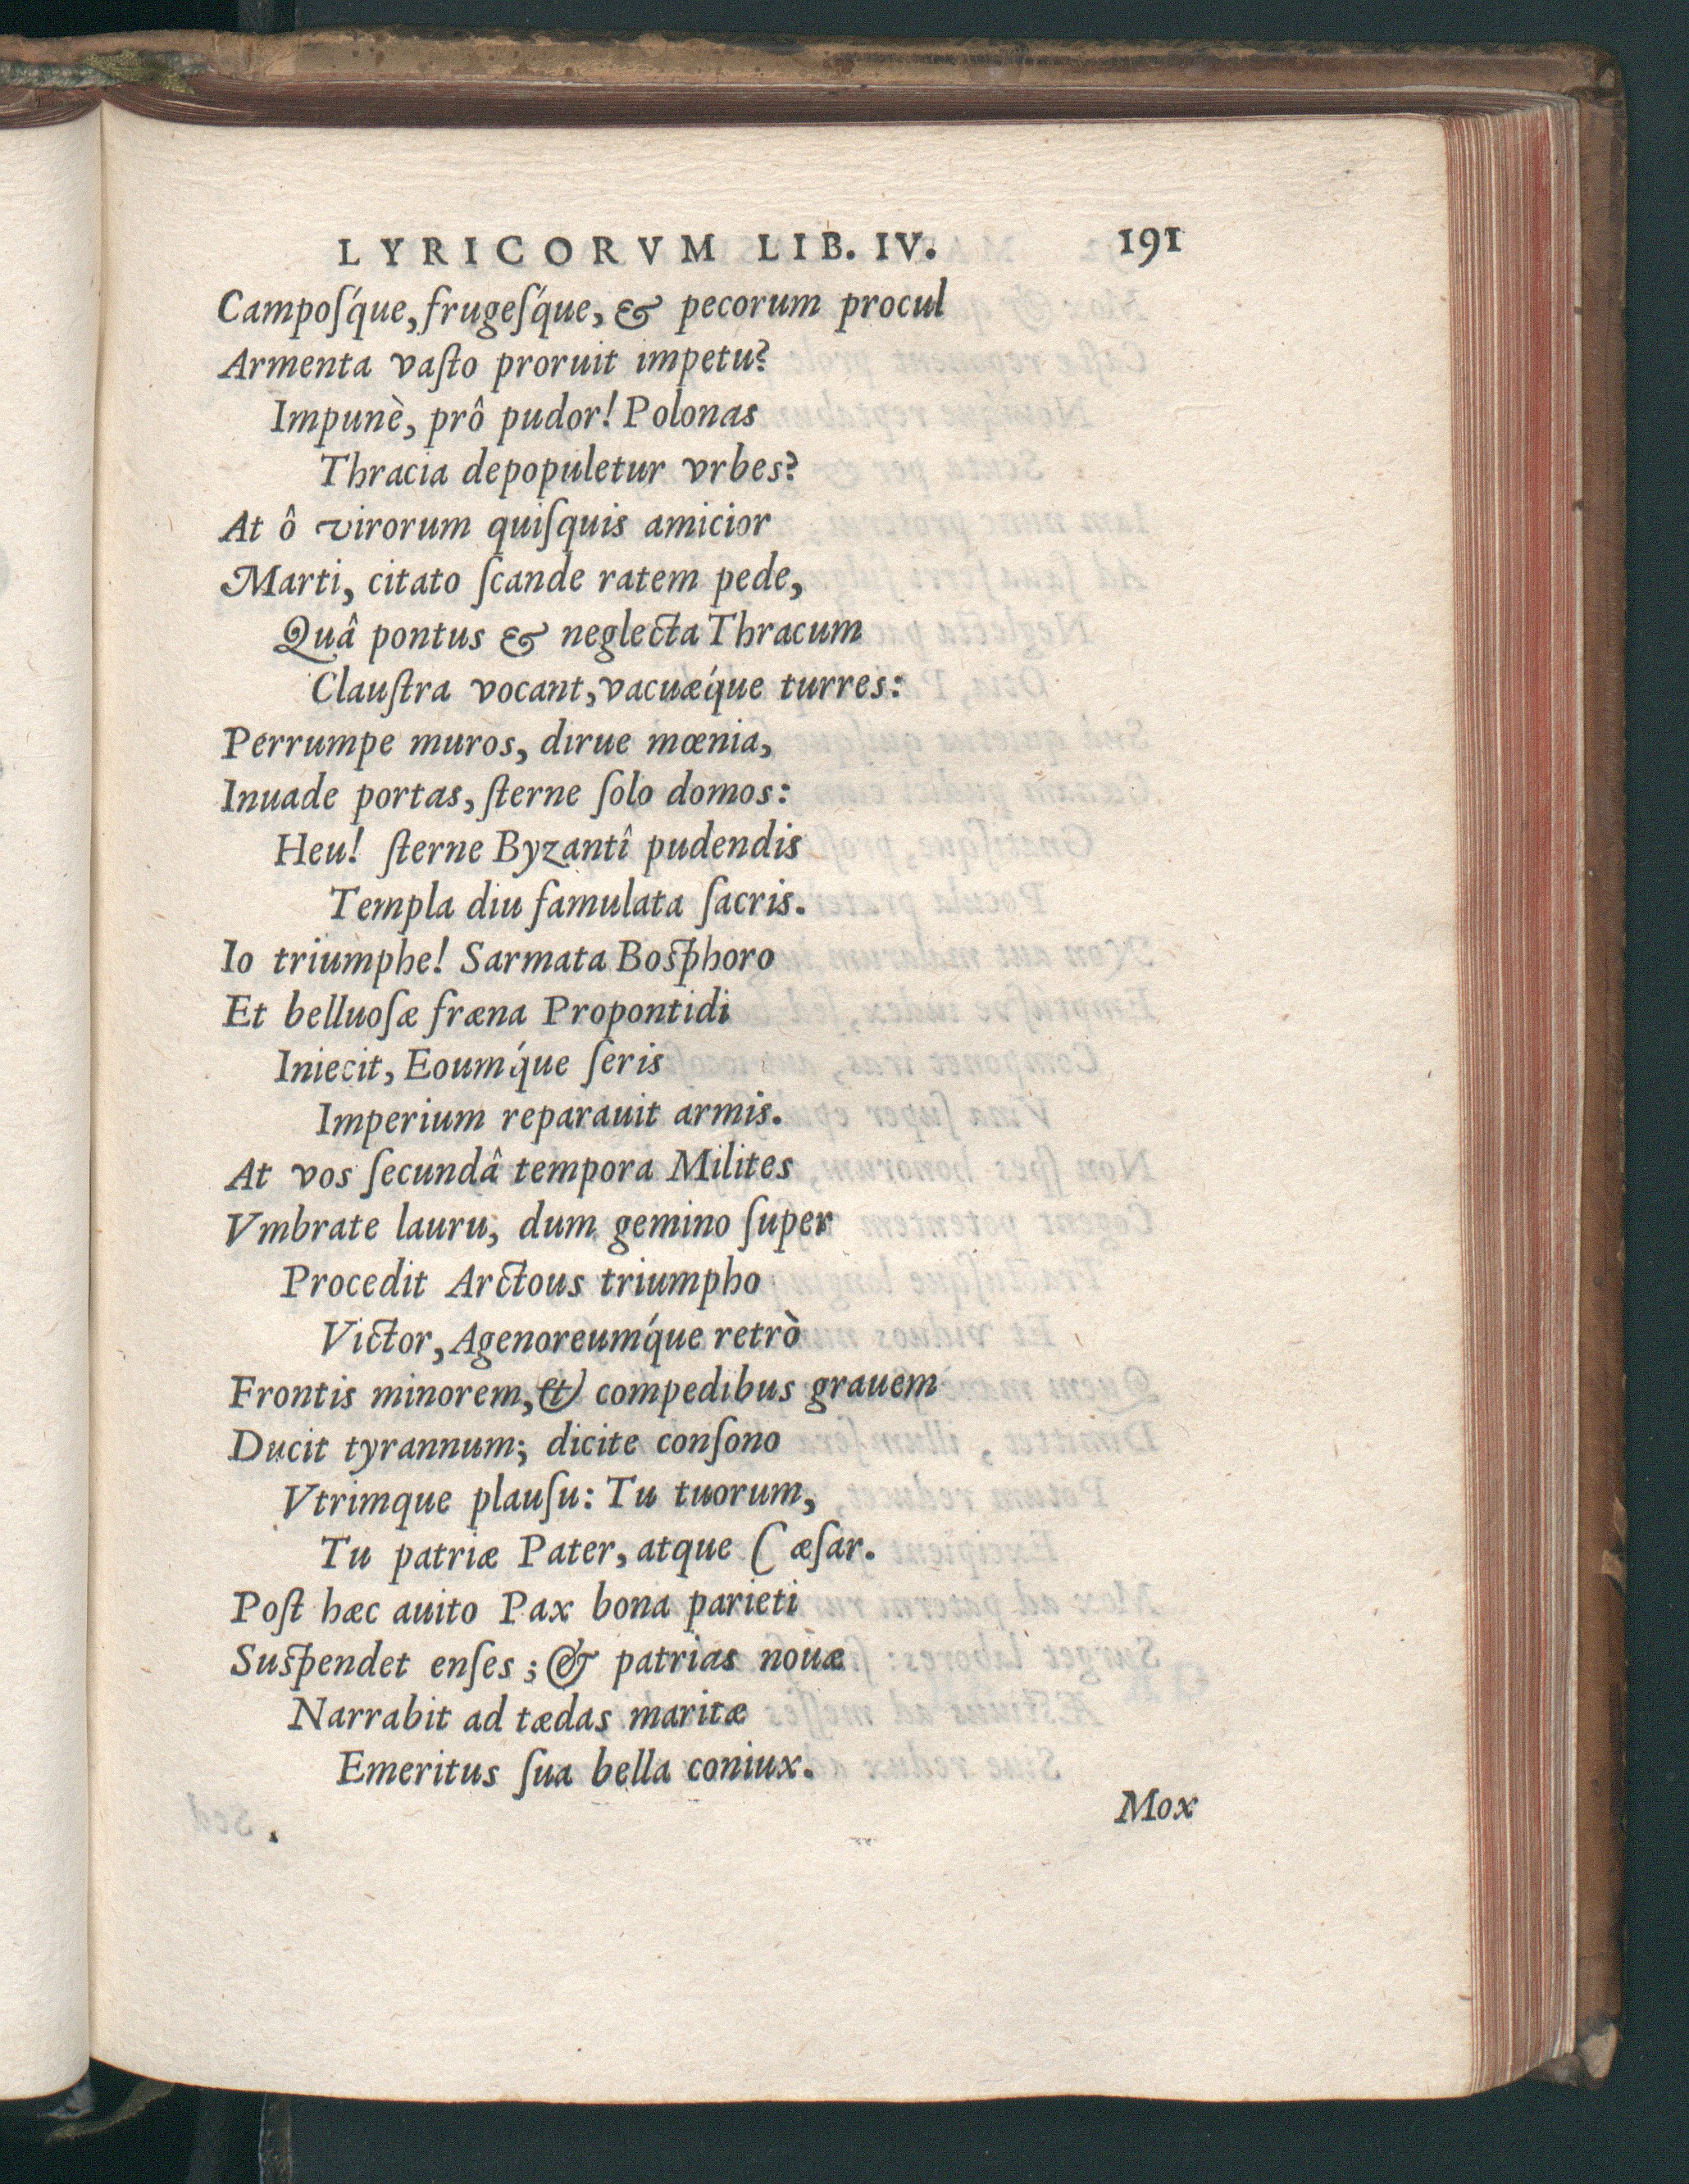 LYRICORVM LIB. IV. 191
Campoſq́ue, frugeſq́ue, & pecorum procul
Armenta vaſto proruit impetu?
Impunè, prô pudor! Polonas
Thracia depopuletur vrbes?
At ô virorum quiſquis amicior
Marti, citato ſcande ratem pede,
Quâ pontus & neglecta Thracum
Clauſtra vocant, vacuæq́ue turres:
Perrumpe muros, dirue mœnia,
Inuade portas, ſterne ſolo domos:
Heu! ſterne Byzantî pudendis
Templa diu famulata ſacris.
Io triumphe! Sarmata Boſphoro
Et belluoſæ fræna Propontidi
Iniecit, Eoumq́ue ſeris
Imperium reparauit armis.
At vos ſecundâ tempora Milites
Vmbrate lauru, dum gemino ſuper
Procedit Arctous triumpho
Victor, Agenoreumq́ue retrò
Frontis minorem, & compedibus grauem
Ducit tyrannum; dicite conſono
Vtrimque plauſu: Tu tuorum,
Tu patriæ Pater, atque Cæſar.
Poſt hæc auito Pax bona parieti
Suſpendet enſes; & patrias nouæ
Narrabit ad tædas maritæ
Emeritus ſua bella coniux.
Mox